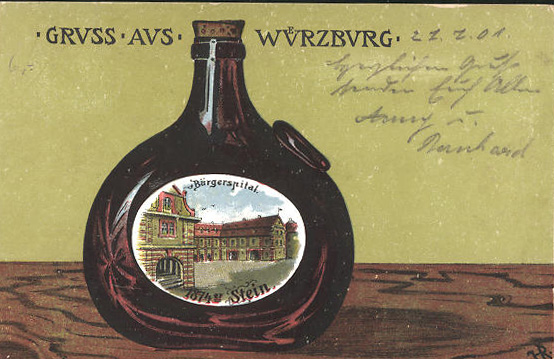 · GRVSS · AVS · WVERZBVRG ·
22.2.01.
Herzlichen Gruß
senden Euch Allen
Anny u.
Bernhard
Bürgerspital.
1874er Stein.